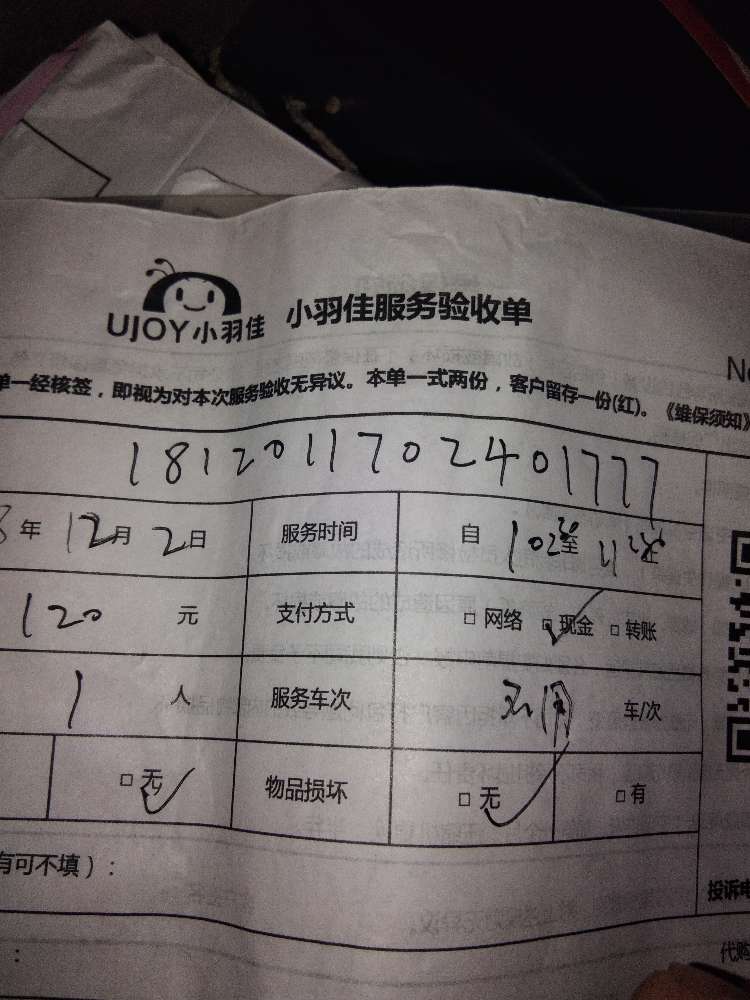 UJOY小羽佳 小羽佳服务验收单
No
单一经核签，即视为对本次服务验收无异议。本单一式两份，客户留存一份(红)。《维保须知》
181201170240177​7
8年12月2日 服务时间 自 至
120元 支付方式 □网络 □现金 □转账
1人 服务车次 车/次
□无 物品损坏 □无 □有
有可不填）：
投诉电
代购
：